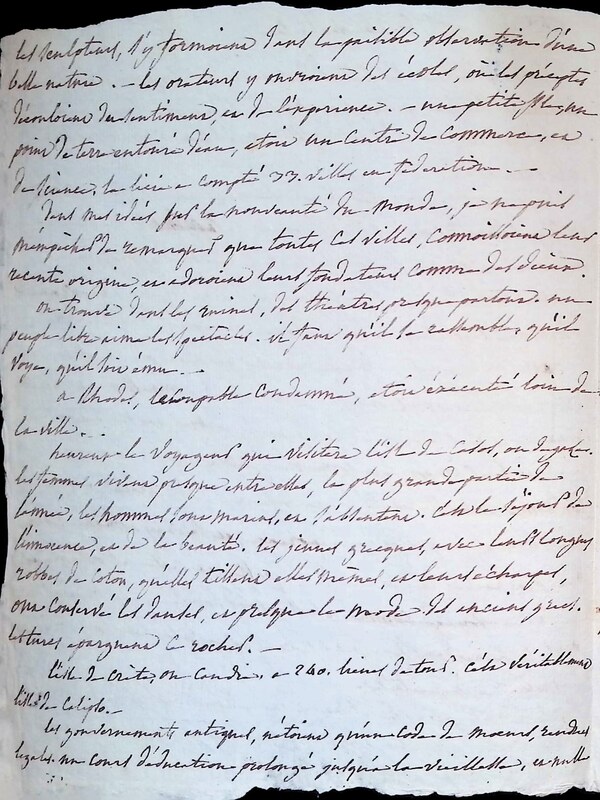 les sculpteurs, s'y formoient dans la paisible observation d'une
belle nature. - les orateurs y ouvroient des écoles, où les préceptes
découloient du sentiment, et de l'expérience. - une petite isle, un
point de terre entouré d'eau, étoit un centre de commerce, et
de science. la licie a compté 33. villes en fédération. -
dans mes idées sur la nouveauté du monde, je ne puis
m'empêcher de remarquer que toutes ces villes, connoissoient leur
récente origine, et adoroient leurs fondateurs comme des dieux.
on trouve dans les ruines, des théâtres presque partout. un
peuple libre aime les spectacles. il faut qu'il se rassemble, qu'il
voye, qu'il soit ému. -
a Rhodes, le coupable condamné, étoit exécuté loin de
la ville. -
heureux le voyageur qui visitera l'isle de Casos, ou
les femmes vivent presque entre elles, la plus grande partie de
l'année, les hommes sont marins, et s'absentent. C'est le séjour de
l'innocence, et de la beauté. les jeunes grecques, avec leurs longues
robbes de coton, qu'elles tissent elles mêmes, et leurs écharpes,
ont conservé les danses, et presque la mode des anciens grecs.
les turcs épargnent ce rocher. -
l'isle de crète, ou Candie, a 240. lieues de tour. c'est véritablement
l'isle de Calipso. -
les gouvernements antiques, n'étoient qu'un code de moeurs, rendues
légales. un cours d'éducation prolongé jusqu'à la vieillesse, et nulle